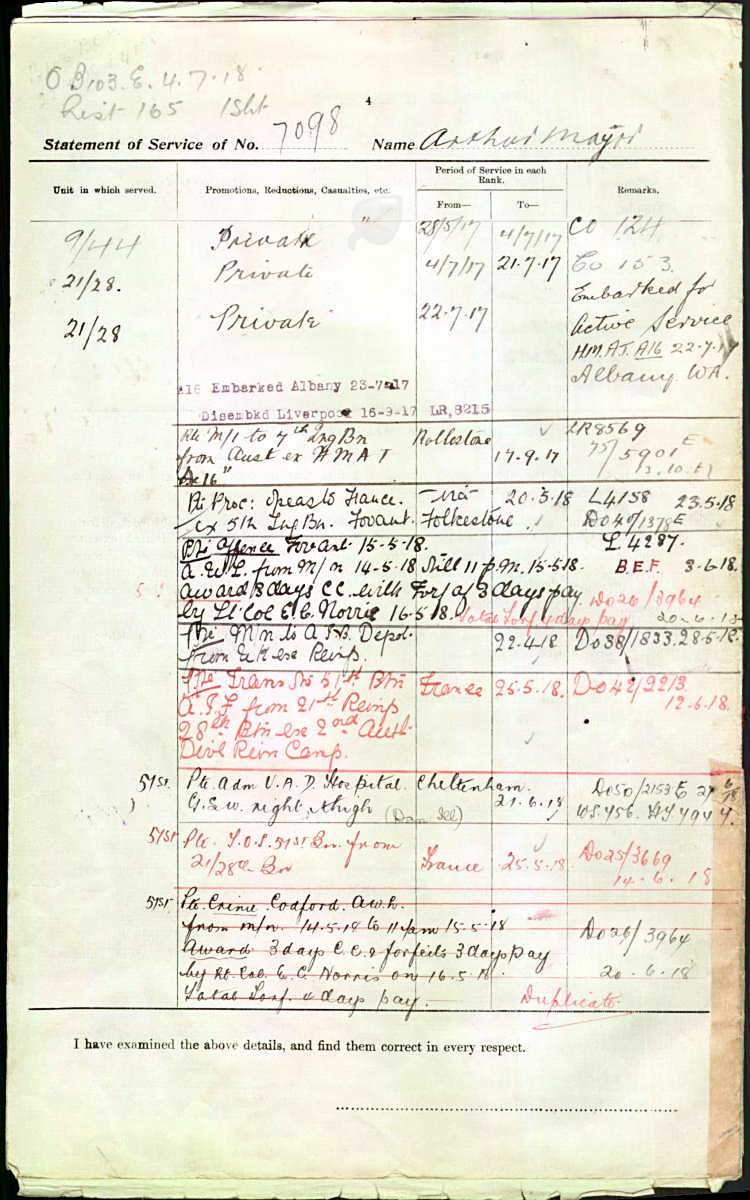 O B103. E. 4.7.18.
List 165 1Sht
4
Statement of Service of No. 7098 Name Arthur
Unit in which served. Promotions, Reductions, Casualties, etc. Period of Service in each Rank. Remarks.
From— To—
9/44 Private 28/5/17 4/7/17 CO 124
21/28. Private 4/7/17 21.7.17 Co 153.
21/28 Private 22.7.17 Embarked for
Active Service
H.M.A.T. A16 22.7.17
Albany. W.A.
A16 Embarked Albany 23-7-17
Disembkd Liverpool 16-9-17 LR,8215
Pte M/I to 7th Trng Bn Rollestone LR8569
from Aust ex H M A T 17.9.17 75/5901 E
"A16" 13.10.17
Pte Proc: O'seas to France. via 20.5.18 L4158 23.5.18
ex 5th Trng Bn. Fovant. Folkestone Do40/1378 E
Pte Offence Fovant 15-5-18. L. 4287.
A.W.L. from M/n 14-5-18 till 11 p.m. 15.5.18. B.E.F. 3-6-18.
award 3 days C C. with Forf of 3 days pay Do26/3964
by Lt Col E. C. Norrie 16.5.18. Total Forf 4 days pay 20-6-18
Pte M/n to A.I.B. Depot 22.4.18 Do38/1833. 28-5-18.
from U.K. ex Reinf.
Pte Trans to 51st Btn France 25.5.18. Do42/2213
A.I.F from 21st Reinf 12-6-18.
28th Btn ex 2nd Aust.
Divl Rein Camp.
51st. Pte. Adm V.A.D. Hospital. Cheltenham. Do50/2153 E 27/6/18
G.S.W. right thigh 21.6.18 W.S.456. HJ4944.
51st Pte. T.O.S. 51st Bn. from
21/28th Bn France 25.5.18 Do25/3669
14-6-18
51st. Pte. Crime. Codford. A.W.L.
from m/n. 14.5.18 to 11 pm 15.5.18 Do26/3964
Award 3 days C.C. & forfeits 3 days pay
by Lt. Col. E. C. Norris on 16.5.18. 20-6-18
Total Forf. 4 days pay. Duplicate.
I have examined the above details, and find them correct in every respect.